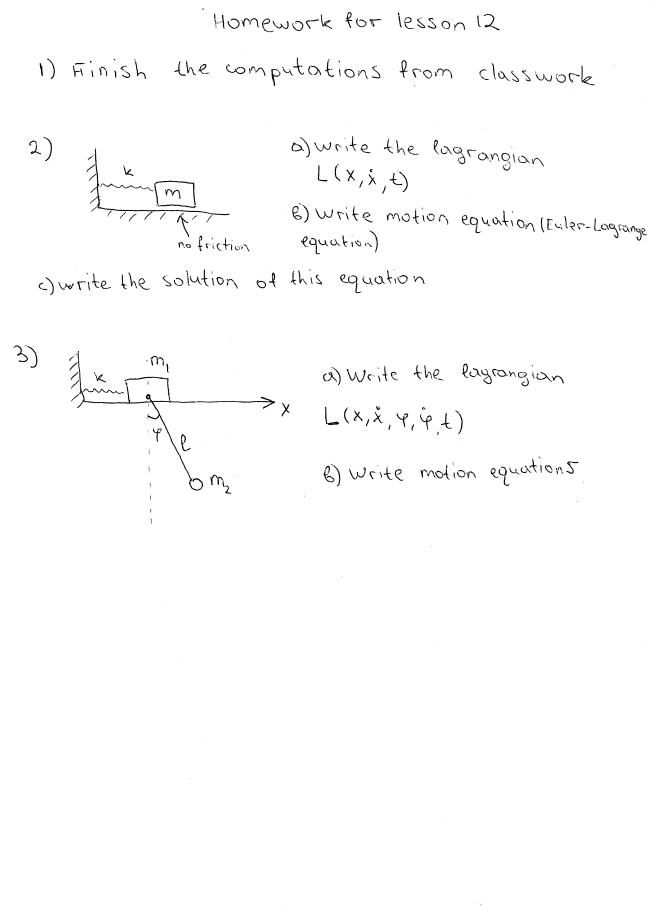 Homework for lesson 12
1) Finish the computations from classwork
2)
k
m
no friction
a) write the lagrangian
L(x,ẋ,t)
б) write motion equation (Euler-Lagrange
equation)
c) write the solution of this equation
3)
k
m₁
x
φ
l
m₂
a) Write the lagrangian
L(x,ẋ,φ,φ̇,t)
б) Write motion equations